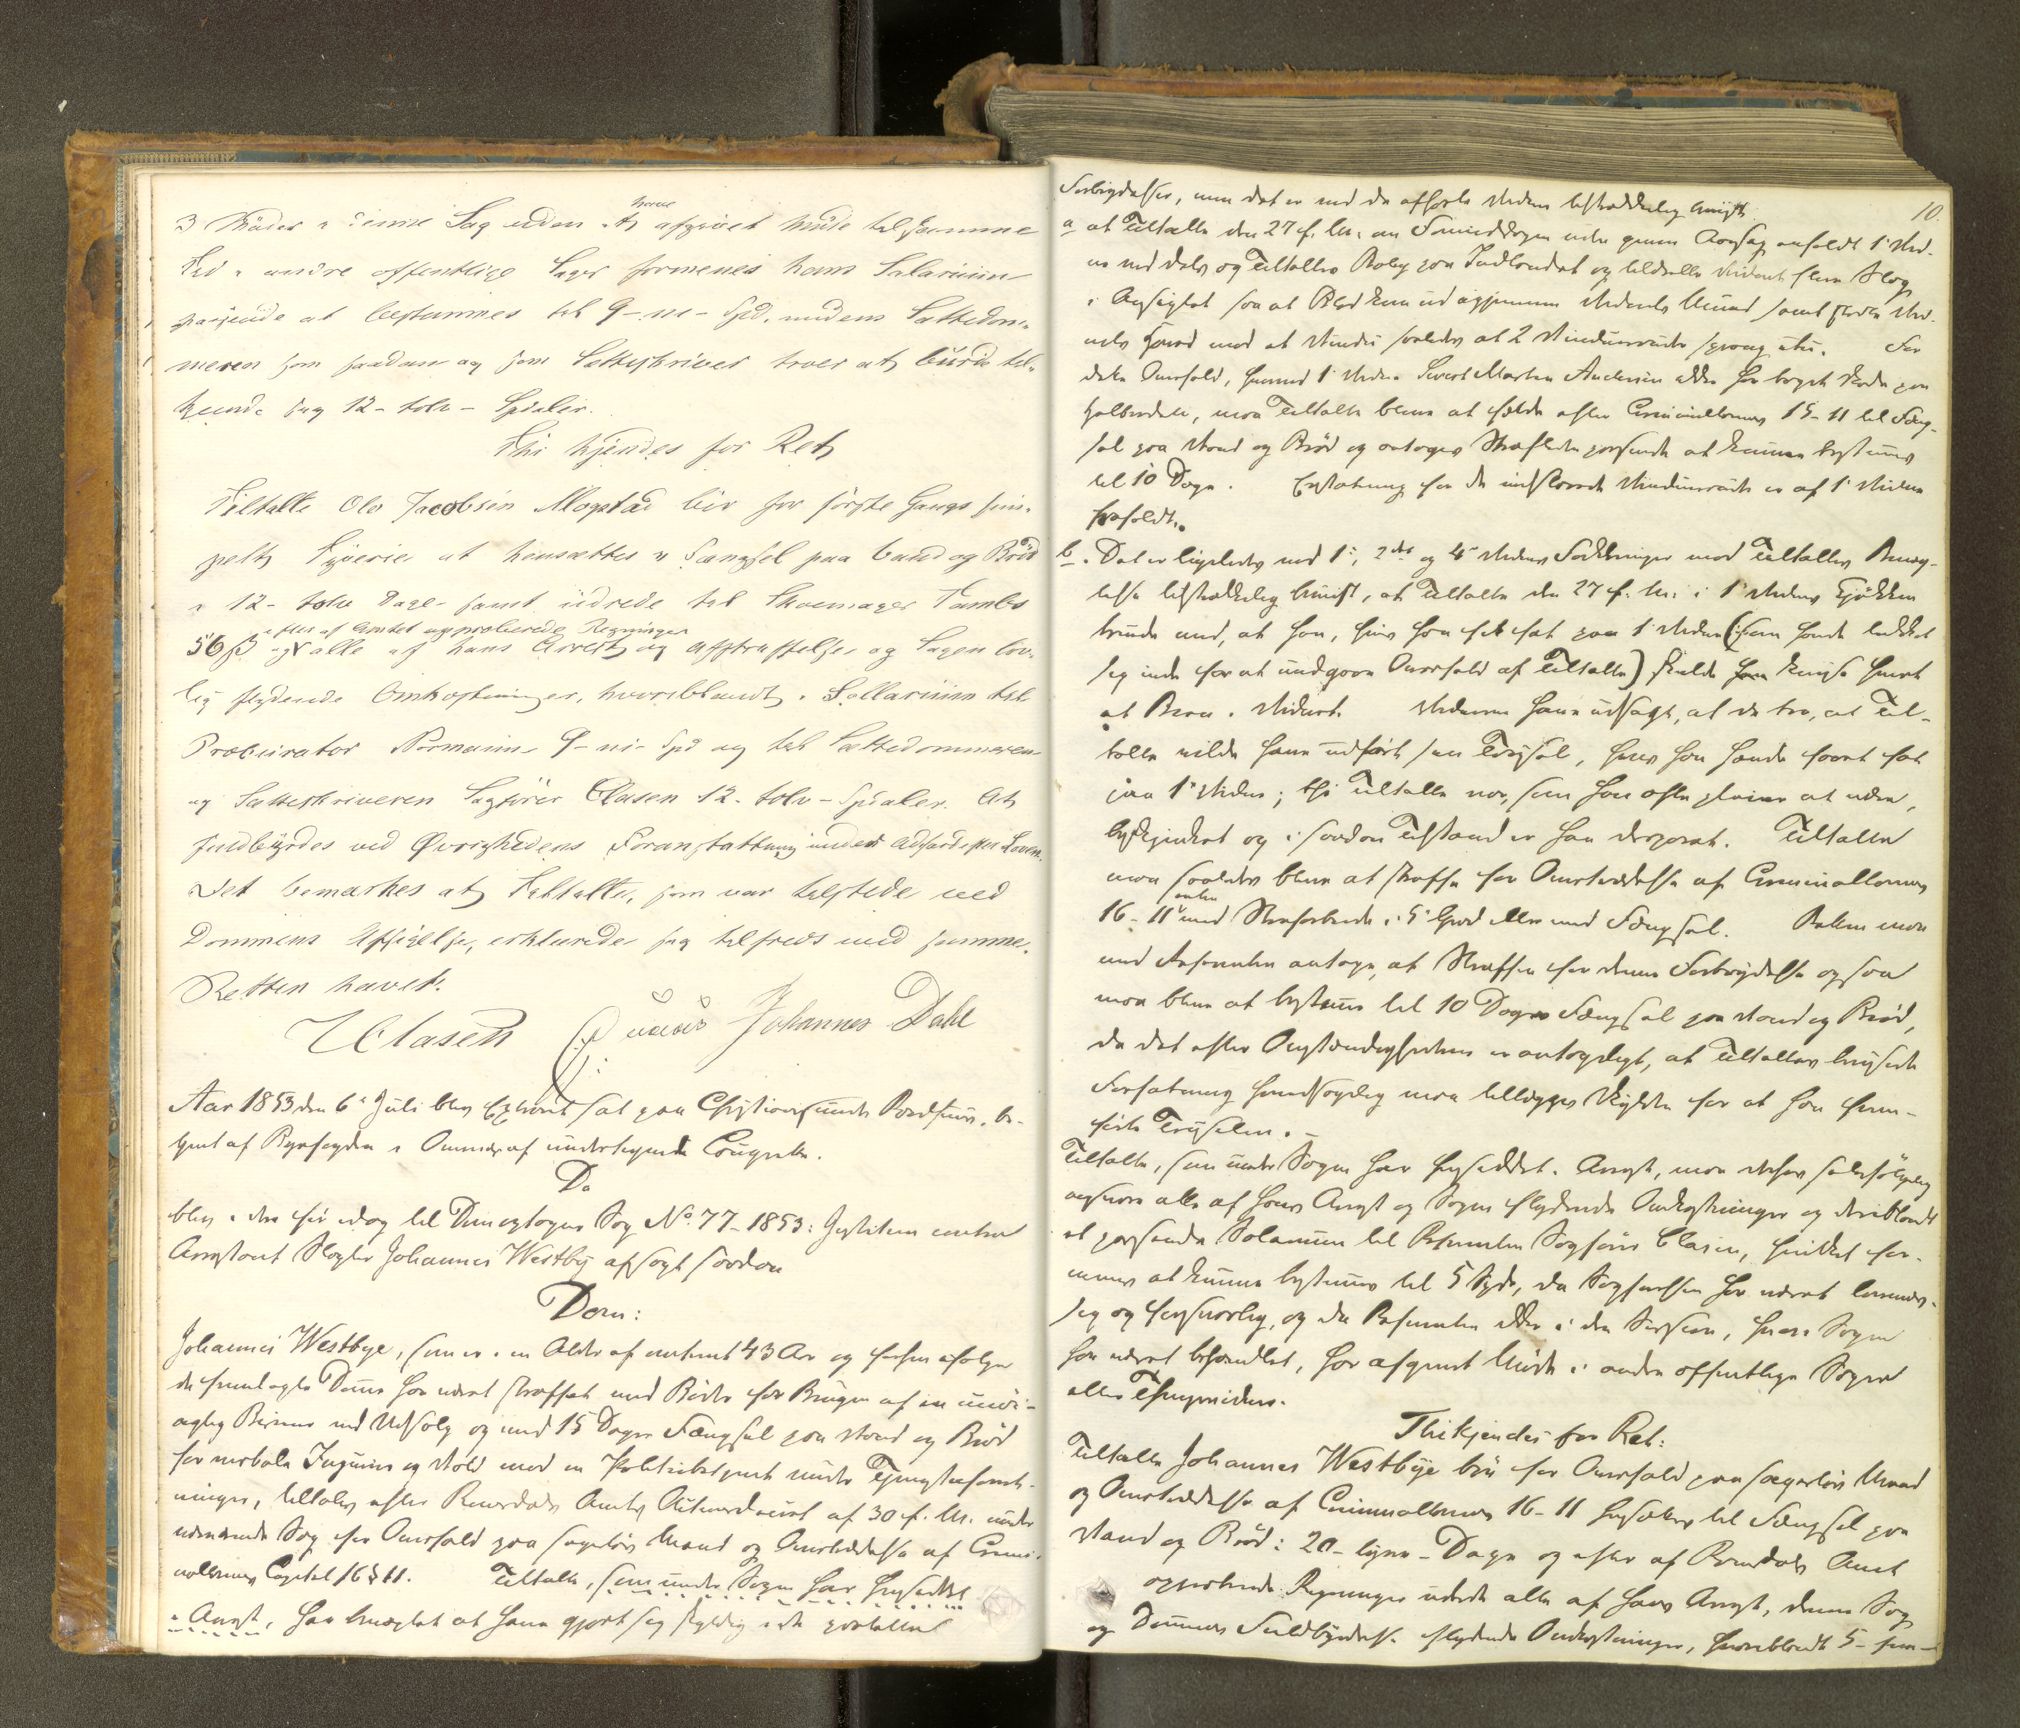 3 Møder i denne Sag uden at have afgivet Møde til samme
Tid i andre offentlige Sager formenes hans Salarium
passende at bestemmes til 9 - ni - Spd. medens Sættedom-
meren som saadan og som Sætteskriver troes at burde til-
kjende sig 12 - tolv - Spdaler.
Thi kjendes for Ret
Tiltalte Ole Jacobsen Mogstad bør for første Gangs sim-
pelt Tyverie at hensættes i Fængsel paa Vand og Brød
i 12 - tolv Dage - samt udrede til Skoemager Tambs
56 ß og efter af Amtet approberede Regninger alle af hans Arrest og Afstraffelse og Sagen lov-
lig flydende Omkostninger, hvoriblandt i Sallarium til
Procurator Normann 9 - ni - Spd og til Sættedommeren
og Sætteskriveren Sagfører Clasen 12 - tolv - Spdaler. At
fuldbyrdes ved Øvrighedens Foranstaltning under Adfærd efter Loven.
Det bemærkes at Tiltalte, som var tilstede ved
Dommens Afsigelse, erklærede sig tilfreds med samme.
Retten hævet.
Clasen Johannes Dahl
Aar 1853 den 6te Juli blev Extraret sat paa Christiansunds Raadstue, be-
tjent af Byfogden i Overvær af undertegnede Laugrette.
Da
blev i den før idag til Dom optagne Sag No. 77 - 1853: Justitien contra
Arrestant Slagter Johannes Westby afsagt saadan
Dom:
Johannes Westbye, som er i en Alder af omtrent 43 Aar og forhen ifølge
de fremlagte Domme har været straffet med Bøder for Brugen af en
Bismer ved Udsalg og med 15 Dages Fængsel paa Vand og Brød
for verbale Injurier og Vold mod en Politiebetjent under Tjenesteforret-
ninger, tiltales efter Romsdals Amts Actionsordre af 30 f. M. under
nærværende Sag for Overfald paa sagesløs Mand og Overtrædelse af Crimi-
nallovens Capitel 16 § 11. Tiltalte, som under Sagen har hensiddet
i Arrest, har benægtet at have gjort sig skyldig i de paatalte
10.
Forbrydelser, men det er ved de afhørte Vidner tilstrækkelig beviist
a at Tiltalte den 27 f. M. om Formiddagen uden given Aarsag anfaldt 1ste Vid-
ne ved dets og Tiltaltes Bolig paa Indlandet og tildeelte Vidnet flere Slag
i Ansigtet saa at Blod kom ud igjennem Vidnets Mund samt stødte Vid-
nets Haand mod et Vindue saaledes at 2 Vinduesruder sprang itu. For
dette Overfald, hvorved 1ste Vidne Sivert Morten Andersen ikke har taget Skade paa
Helbreden, maa Tiltalte blive at fælde efter Criminallovens 15 - 11 til Fæng-
sel paa Vand og Brød og antages Straffetiden passende at kunne bestemmes
til 10 Dage. Erstatning for de indslaaede Vinduesruder er af 1ste Vidne
frafaldt.
b. Det er ligeledes ved 1ste, 2det og 4de Vidnes Forklaringer mod Tiltaltes Benæg-
telse tilstrækkelig beviist, at Tiltalte den 27 f. M. i 1ste Vidnes Kjøkken
truede med, at han, hvis han fik fat paa 1ste Vidne (som havde lukket
sig inde for at undgaae Overfald af Tiltalte) skulde han
. Vidnet. Vidnerne have udsagt, at de tro, at Til-
talte vilde have udført sin Trudsel, hvis han havde faaet fat
paa 1ste Vidne; thi Tiltalte var, som han ofte pleier at være,
beskjænket og i saadan Tilstand er han desperat. Tiltalte
maa saaledes blive at straffe for Overtrædelse af Criminallovens
16 - 11 enten med Strafarbeide i 5te Grad eller med Fængsel. Retten maa
med Defensor antage, at Straffen for denne Forbrydelse ogsaa
maa blive at bestemme til 10 Dages Fængsel paa Vand og Brød,
da det efter Omstændighederne er antageligt, at Tiltaltes
Forfatning hovedsagelig maa tillægges Skylden for at han frem-
førte Truselen. -
Tiltalte, som under Sagen har hensiddet i Arrest, maa derhos selvfølgelig
udrede alle af hans Arrest og Sagen flydende Omkostninger og deriblandt
et passende Salarium til Defensor Sagfører Clasen, hvilket for-
menes at kunne bestemmes til 5 Spd, da Sagførselen har været lovmæs-
sig og forsvarlig, og da Defensor ikke i den Session, hvori Sagen
har været behandlet, har afgivet Møde i andre offentlige Sager
eller Thingvidner.
Thi kjendes for Ret:
Tiltalte Johannes Westbye bør for Overfald paa sagesløs Mand
og Overtrædelse af Criminallovens 16 - 11 hensættes til Fængsel paa
Vand og Brød i 20 - tyve - Dage og efter af Romsdals Amt
approberede Regninger udrede alle af hans Arrest, denne Sag
og Dommens Fuldbyrdelse flydende Omkostninger, hvoriblandt 5 - fem -